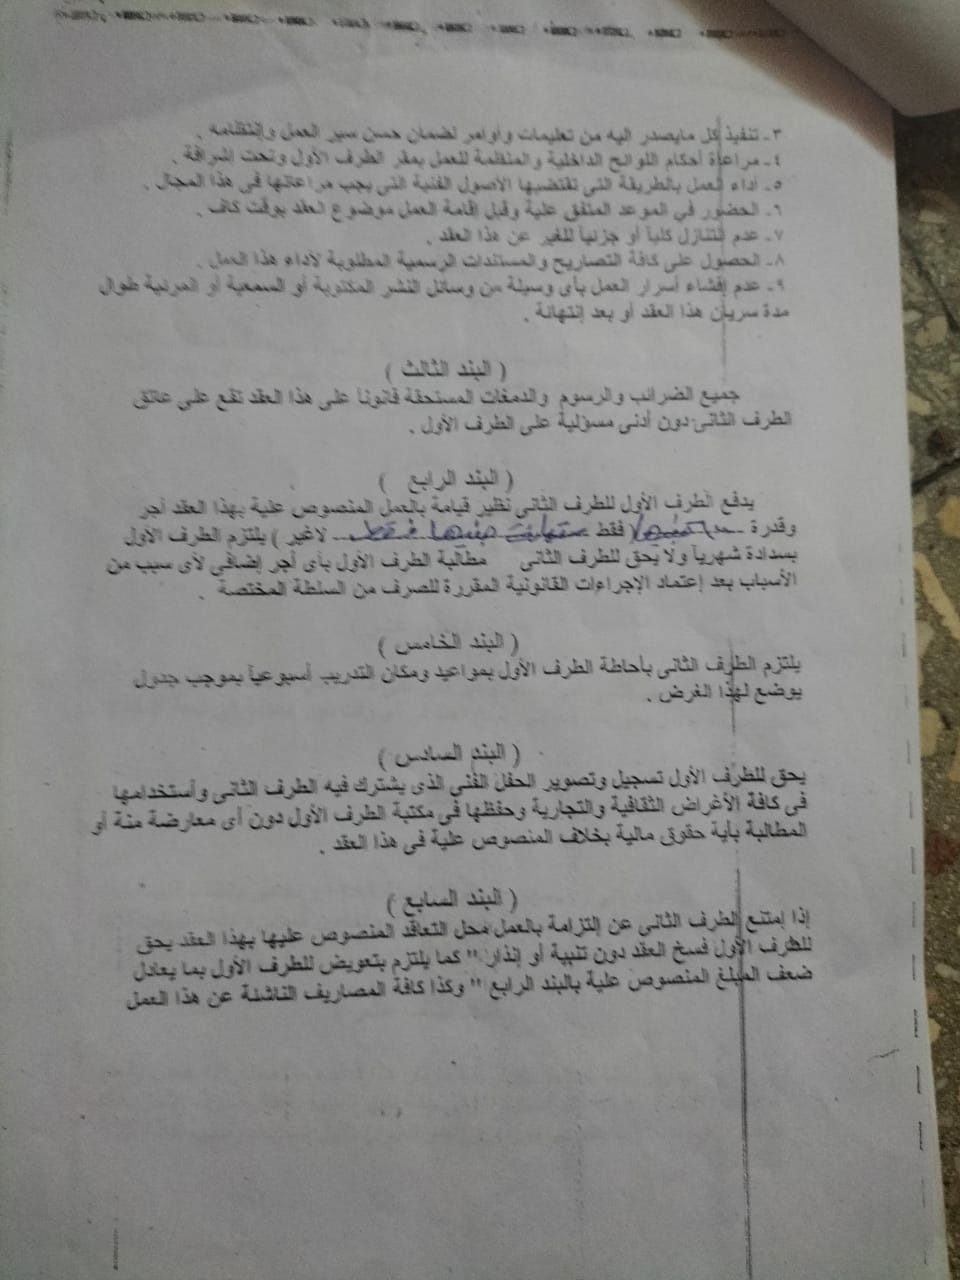 ٣- تنفيذ كل مايصدر اليه من تعليمات وأوامر لضمان حسن سير العمل وإنتظامه .
٤- مراعاة أحكام اللوائح الداخلية والمنظمة للعمل بمقر الطرف الأول وتحت إشرافة .
٥- أداء العمل بالطريقة التى تقتضيها الأصول الفنية التى يجب مراعاتها فى هذا المجال .
٦- الحضور في الموعد المتفق علية وقبل إقامة العمل موضوع العقد بوقت كاف .
٧- عدم التنازل كلياً أو جزئياً للغير عن هذا العقد .
٨- الحصول على كافة التصاريح والمستندات الرسمية المطلوبة لأداء هذا العمل .
٩- عدم إفشاء أسرار العمل بأى وسيلة من وسائل النشر المكتوبة أو السمعية أو المرئية طوال
مدة سريان هذا العقد أو بعد إنتهائة .
( البند الثالث )
جميع الضرائب والرسوم والدمغات المستحقة قانوناً على هذا العقد تقع على عاتق
الطرف الثانى دون أدنى مسؤلية على الطرف الأول .
( البند الرابع )
يدفع الطرف الأول للطرف الثانى نظير قيامة بالعمل المنصوص علية بهذا العقد أجر
وقدرة فقط ستمائة جنيها فقط لاغير ) يلتزم الطرف الأول
بسدادة شهرياً ولا يحق للطرف الثانى مطالبة الطرف الأول بأى أجر إضافى لأى سبب من
الأسباب بعد إعتماد الإجراءات القانونية المقررة للصرف من السلطة المختصة .
( البند الخامس )
يلتزم الطرف الثانى بأحاطة الطرف الأول بمواعيد ومكان التدريب أسبوعياً بموجب جدول
يوضع لهذا الغرض .
( البند السادس )
يحق للطرف الأول تسجيل وتصوير الحفل الفنى الذى يشترك فيه الطرف الثانى وأستخدامها
فى كافة الأغراض الثقافية والتجارية وحفظها فى مكتبة الطرف الأول دون أى معارضة منة أو
المطالبة بأية حقوق مالية بخلاف المنصوص علية فى هذا العقد .
( البند السابع )
إذا إمتنع الطرف الثانى عن إلتزامة بالعمل محل التعاقد المنصوص عليها بهذا العقد يحق
للطرف الأول فسخ العقد دون تنبية أو إنذار " كما يلتزم بتعويض للطرف الأول بما يعادل
ضعف المبلغ المنصوص علية بالبند الرابع " وكذا كافة المصاريف الناشئة عن هذا العمل